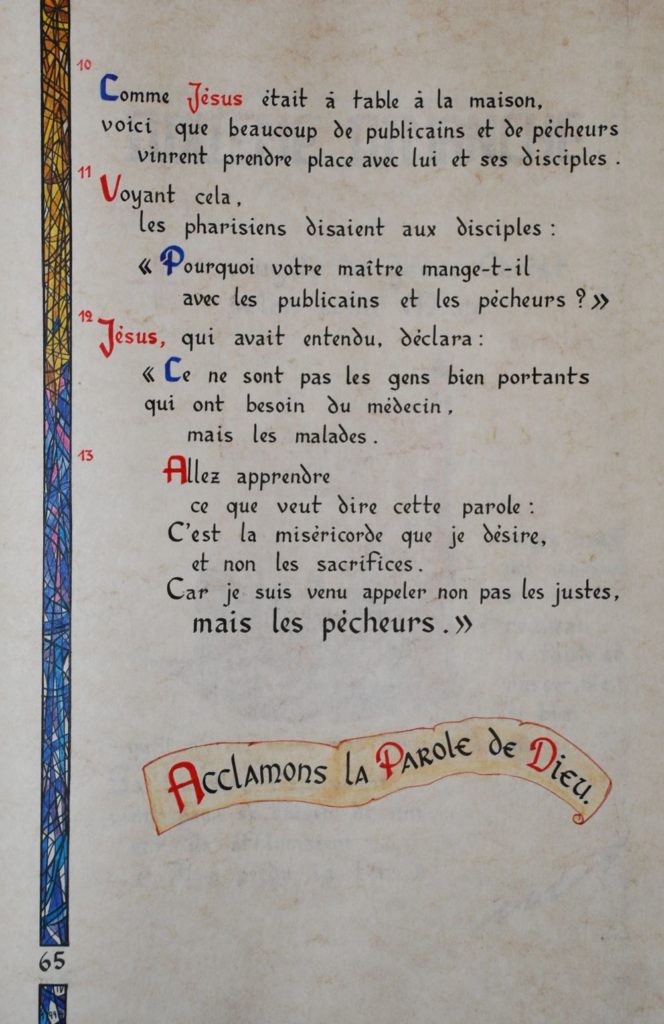 10
Comme Jésus était à table à la maison,
voici que beaucoup de publicains et de pécheurs
vinrent prendre place avec lui et ses disciples.
11
Voyant cela,
les pharisiens disaient aux disciples :
« Pourquoi votre maître mange-t-il
avec les publicains et les pécheurs ? »
12
Jésus, qui avait entendu, déclara :
« Ce ne sont pas les gens bien portants
qui ont besoin du médecin,
mais les malades.
13
Allez apprendre
ce que veut dire cette parole :
C'est la miséricorde que je désire,
et non les sacrifices.
Car je suis venu appeler non pas les justes,
mais les pécheurs. »
Acclamons la Parole de Dieu.
65